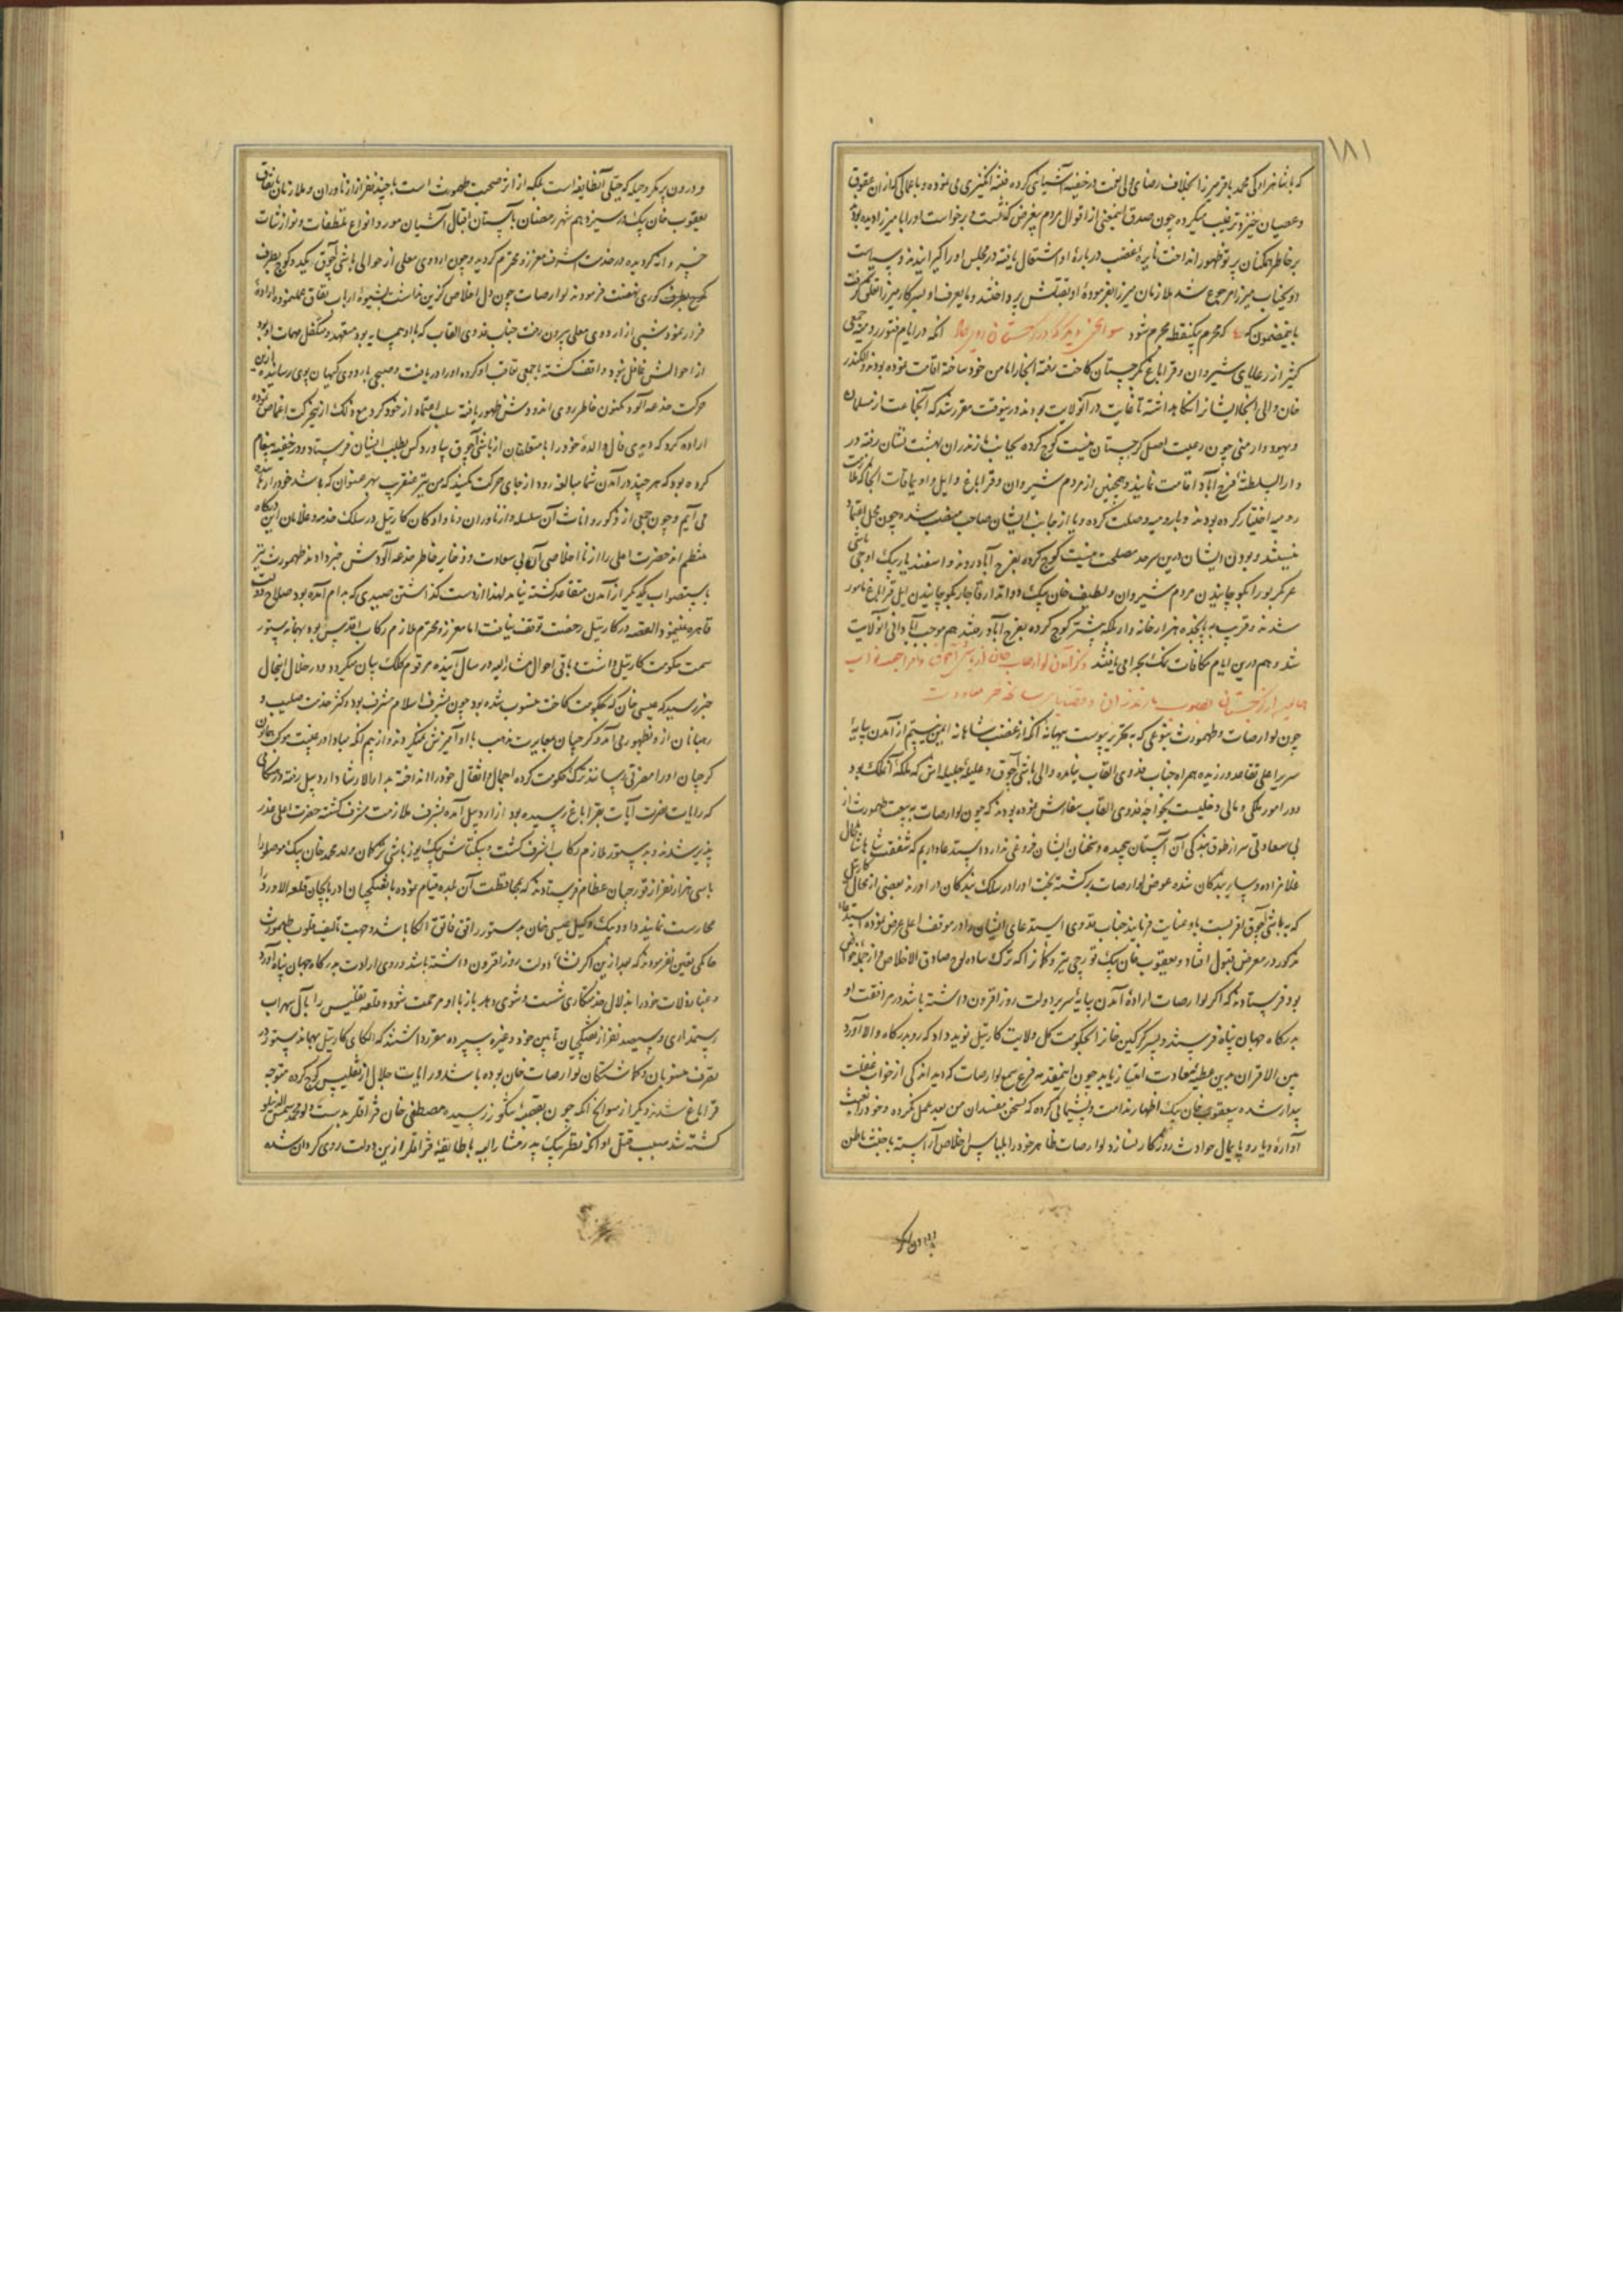 ۱۸۱
که با شاهزادگی محمد باقر میرزا بخلاف رضای ولی نعمت در خفیه آشنایی کرده فتنه انگیزی می نموده و باعمالی که از آن عقوق
و عصیان خیزد ترغیب میکرده چون صدق اینمعنی از اقوال مردم بیغرض
بر خاطر همگنان پرتو ظهور انداخت نایرهٔ غضب در بارهٔ او اشتعال یافته در مجلس او را گیرانیدند و سیاست
او بجناب میرزا مرجوع شد ملازمان میرزا بفرمودهٔ او بقتلش پرداختند و مایعرف او بسرکار میرزا تعلق گرفت
باینمضمون که که محرم بیکنقطه مجرم شود سوانح دیگر که در گرجستان روی داد آنکه در ایام فتور رومیه جمعی
کثیر از رعایای شیروان و قراباغ بگرجستان کاخت رفته آنجا را مامن خود ساخته اقامت نموده بودند و الکسندر
خان والی آنجا ایشانرا نگاهداشته تا غایت در آنولایت بودند درینوقت مقرر شد که آنجماعت از مسلمان
و یهود و ارمنی چون رعیت اصل گرجستان نیست کوچ کرده بجانب مازندران بهشت نشان رفته در
دار السلطنهٔ فرح آباد اقامت نمایند و همچنین از مردم شیروان و قراباغ و ایل و اویماقات آنجا که ملازمت
رومیه اختیار کرده بودند و با رومیه وصلت کرده و یا از جانب ایشان صاحب منصب شده چون محل اعتماد
نیستند و بودن ایشان درین سرحد مصلحت نیست کوچ کرده بفرح آباد روند و اسفندیار بیک اوجی باشی
عربگیرلو را بکوچانیدن مردم شیروان و لطیف خان بیک دواتدار قاجار بکوچانیدن ایل قراباغ مامور
شدند و قریب به پانجده هزار خانه وار بلکه بیشتر کوچ کرده بفرح آباد رفتند هم موجب آبادانی آنولایت
شد و هم درین ایام مکافات نمک بحرامی یافتند ذکر آمدن لوارصاب خان از باشی آچوق و مراجعت نواب
همایون از گرجستان بصوب مازندران و قضایا
چون لوارصاب و طهمورث بنوعی که به تحریر پیوست ببهانه آنکه از غضب شاهانه ایمن نیستیم از آمدن بپایهٔ
سریر اعلی تقاعد ورزیده همراه جناب فدوی القاب نیامدند والی باشی آچوق و علیهٔ جلیله اش که ملکهٔ آنملک بود
و در امور ملکی و مالی دخلیست بخواجه فدوی القاب سفارش نموده بودند که چون لوارصاب به تبعیت طهمورث از
بی سعادتی سر از طوق بندگی آن آستان پیچیده و سخنان ایشان فروغی ندارد استدعا داریم که شفقت شاهانه شامل حال
غلامزاده و سایر بندگان شده عوض لوارصاب برگشته بخت او را در سلک بندگان در اورند و بعضی از محال کارتیل
که بباشی آچوق اقربست باو عنایت فرمایند جناب فدوی استدعای ایشان را در موقف اعلی عرض نموده استدعای
مذکور در معرض قبول افتاد و یعقوب خان بیک قورچی تیر و کمان را که ترک ساده لوح صادق الاخلاص از جمله خواص
بود فرستادند که اگر لوارصاب ارادهٔ آمدن بپایهٔ سریر دولت روز افزون داشته باشد در مرافقت او
بدرگاه جهان پناه فرستند و پسر گرگین خان را بحکومت کل ولایت کارتیل نوید داد که رو بدرگاه والا آورد
بین الاقران بدین عطیه و سعادت امتیاز یابد چون اینمقدمه قرع سمع لوارصاب گردید اندکی از خواب غفلت
بیدار شده بیعقوب خان بیک اظهار ندامت و پشیمانی کرده که بسخن مفسدان من بعد عمل نکرده و خود را بعبث
آوارهٔ دیار و پایمال حوادث روزگار نسازد لوارصاب ظاهر خود را بلباس اخلاص آراسته با خبث باطن
و درون پر مکر و حیله که جبلی آنطایفه است بلکه از اثر صحبت طهمورث است با چند نفر از ازناوران و ملازمان باتفاق
یعقوب خان بیک در سیزدهم شهر رمضان بآستان اقبال آشیان مورد انواع تلطفات و نوازشات
خسروانه گردیده در خدمت اشرف معزز و محترم گردید و چون اردوی معلی از حوالی باشی آچوق
کوچ بطرف گوری نهضت فرمودند لوارصاب چون دل اخلاص گزین نداشت بشیوهٔ ارباب نفاق عمل نموده ارادهٔ
فرار نمود شبی از اردوی معلی بیرون رفت جناب فدوی القاب که با او همسایه بود و متعهد و متکفل مهمات او بود
از احوالش غافل نبود واقف گشته با جمعی تعاقب او کرده او را دریافت و صبحی باردوی کیهان پوی رسانیده بازین
حرکت خدعه آلود مکنون خاطر روی اندودش ظهور یافته سلب اعتماد از خود کرد مع ذلک از آن حرکت اغماض نموده
اراده کرد که دیدی فال والدهٔ خود را با متعلقان از باشی آچوق بیاورد کس بطلب ایشان فرستاد و در خفیه پیغام
کرده بود که هر چند در آمدن شما مبالغه رود از جای حرکت نکنید که من نیز عنقریب بهر عنوان که باشد خود را رها
می آیم و چون جمعی از ذکور و اناث آن سلسله و ازناوران و نادادگان کارتیل در سلک خدمه و غلامان این درگاه
منتظم اند حضرت اعلی را از نا اخلاصی آن بی سعادت و ذخایر خاطر خدعه آلودش خبر دادند طهمورث نیز
باستصواب یکدیگر از آمدن متقاعد گشته نیامد لهذا از دست گذاشتن صیدی که بدام آمده بود صلاح دولت
قاهره نمینمود القصه در کارتیل رخصت توقف نیافت اما معزز و محترم ملازم رکاب اقدس بود بهمان دستور
سمت حکومت کارتیل داشت باقی احوال مشارالیه در سال آینده مرقوم کلک بیان میگردد و در خلال اینحال
خبر رسید که عیسی خان که بحکومت کاخت منسوب شده بود چون بشرف اسلام مشرف بود و کمتر خدمت صلیب و
رهبانان ازو بظهور می آمد و گرجیان مغایرت مذهب با او آمیزش نمیکردند و از بیم آنکه مبادا در غیبت موکب همایون
گرجیان او را مضرتی رسانند ترک حکومت کرده احمال و اثقال خود را انداخته بدار الارشاد اردبیل رفته در هنگامی
که رایات نصرت آیات بقراباغ رسیده بود از اردبیل آمده بشرف ملازمت مشرف گشته حضرت اعلی عذر
پذیر شدند و بدستور ملازم رکاب اشرف گشت و بیکتاش بیک یوزباشی ترکمان ولد محمد خان بیک موصلو را
با سی هزار نفر از قورچیان عظام فرستادند که بمحافظت آن بلده قیام نموده با تفنگچیان اذربایجان قلعه الاورد را
محارست نمایند و داود بیک وکیل عیسی خان بدستور راتق و فاتق الکا باشد و جهت تالیف قلوب طهمورث
حاکمی تعین نفرمودند که بعد ازین اگر دولت روز افزون داشته باشد و روی ارادت بدرگاه جهان پناه آورد
و غبار ذلات خود را بزلال خدمتکاری شست و شوی دهد باز باو مرحمت شود و قلعه تفلیس را بآل سهراب
رستمداری و سیصد نفر از تفنگچیان تابین خود و غیره سپرده مقرر داشتند که الکای کارتیل بهمان دستور در
تصرف منسوبان و گماشتگان لوارصاب خان بوده باشد و رایات جلال از تفلیس کوچ کرده متوجه
قراباغ شدند دیگر از سوانح آنکه چون بقصبهٔ شکور رسیده مصطفی خان قزاقلر بدست ولد محمد شمس الدینلو
کشته شد سبب قتل او آنکه نظر بیک پدر مشارالیه با طایفهٔ قزاقلر ازین دولت روی گردان شده